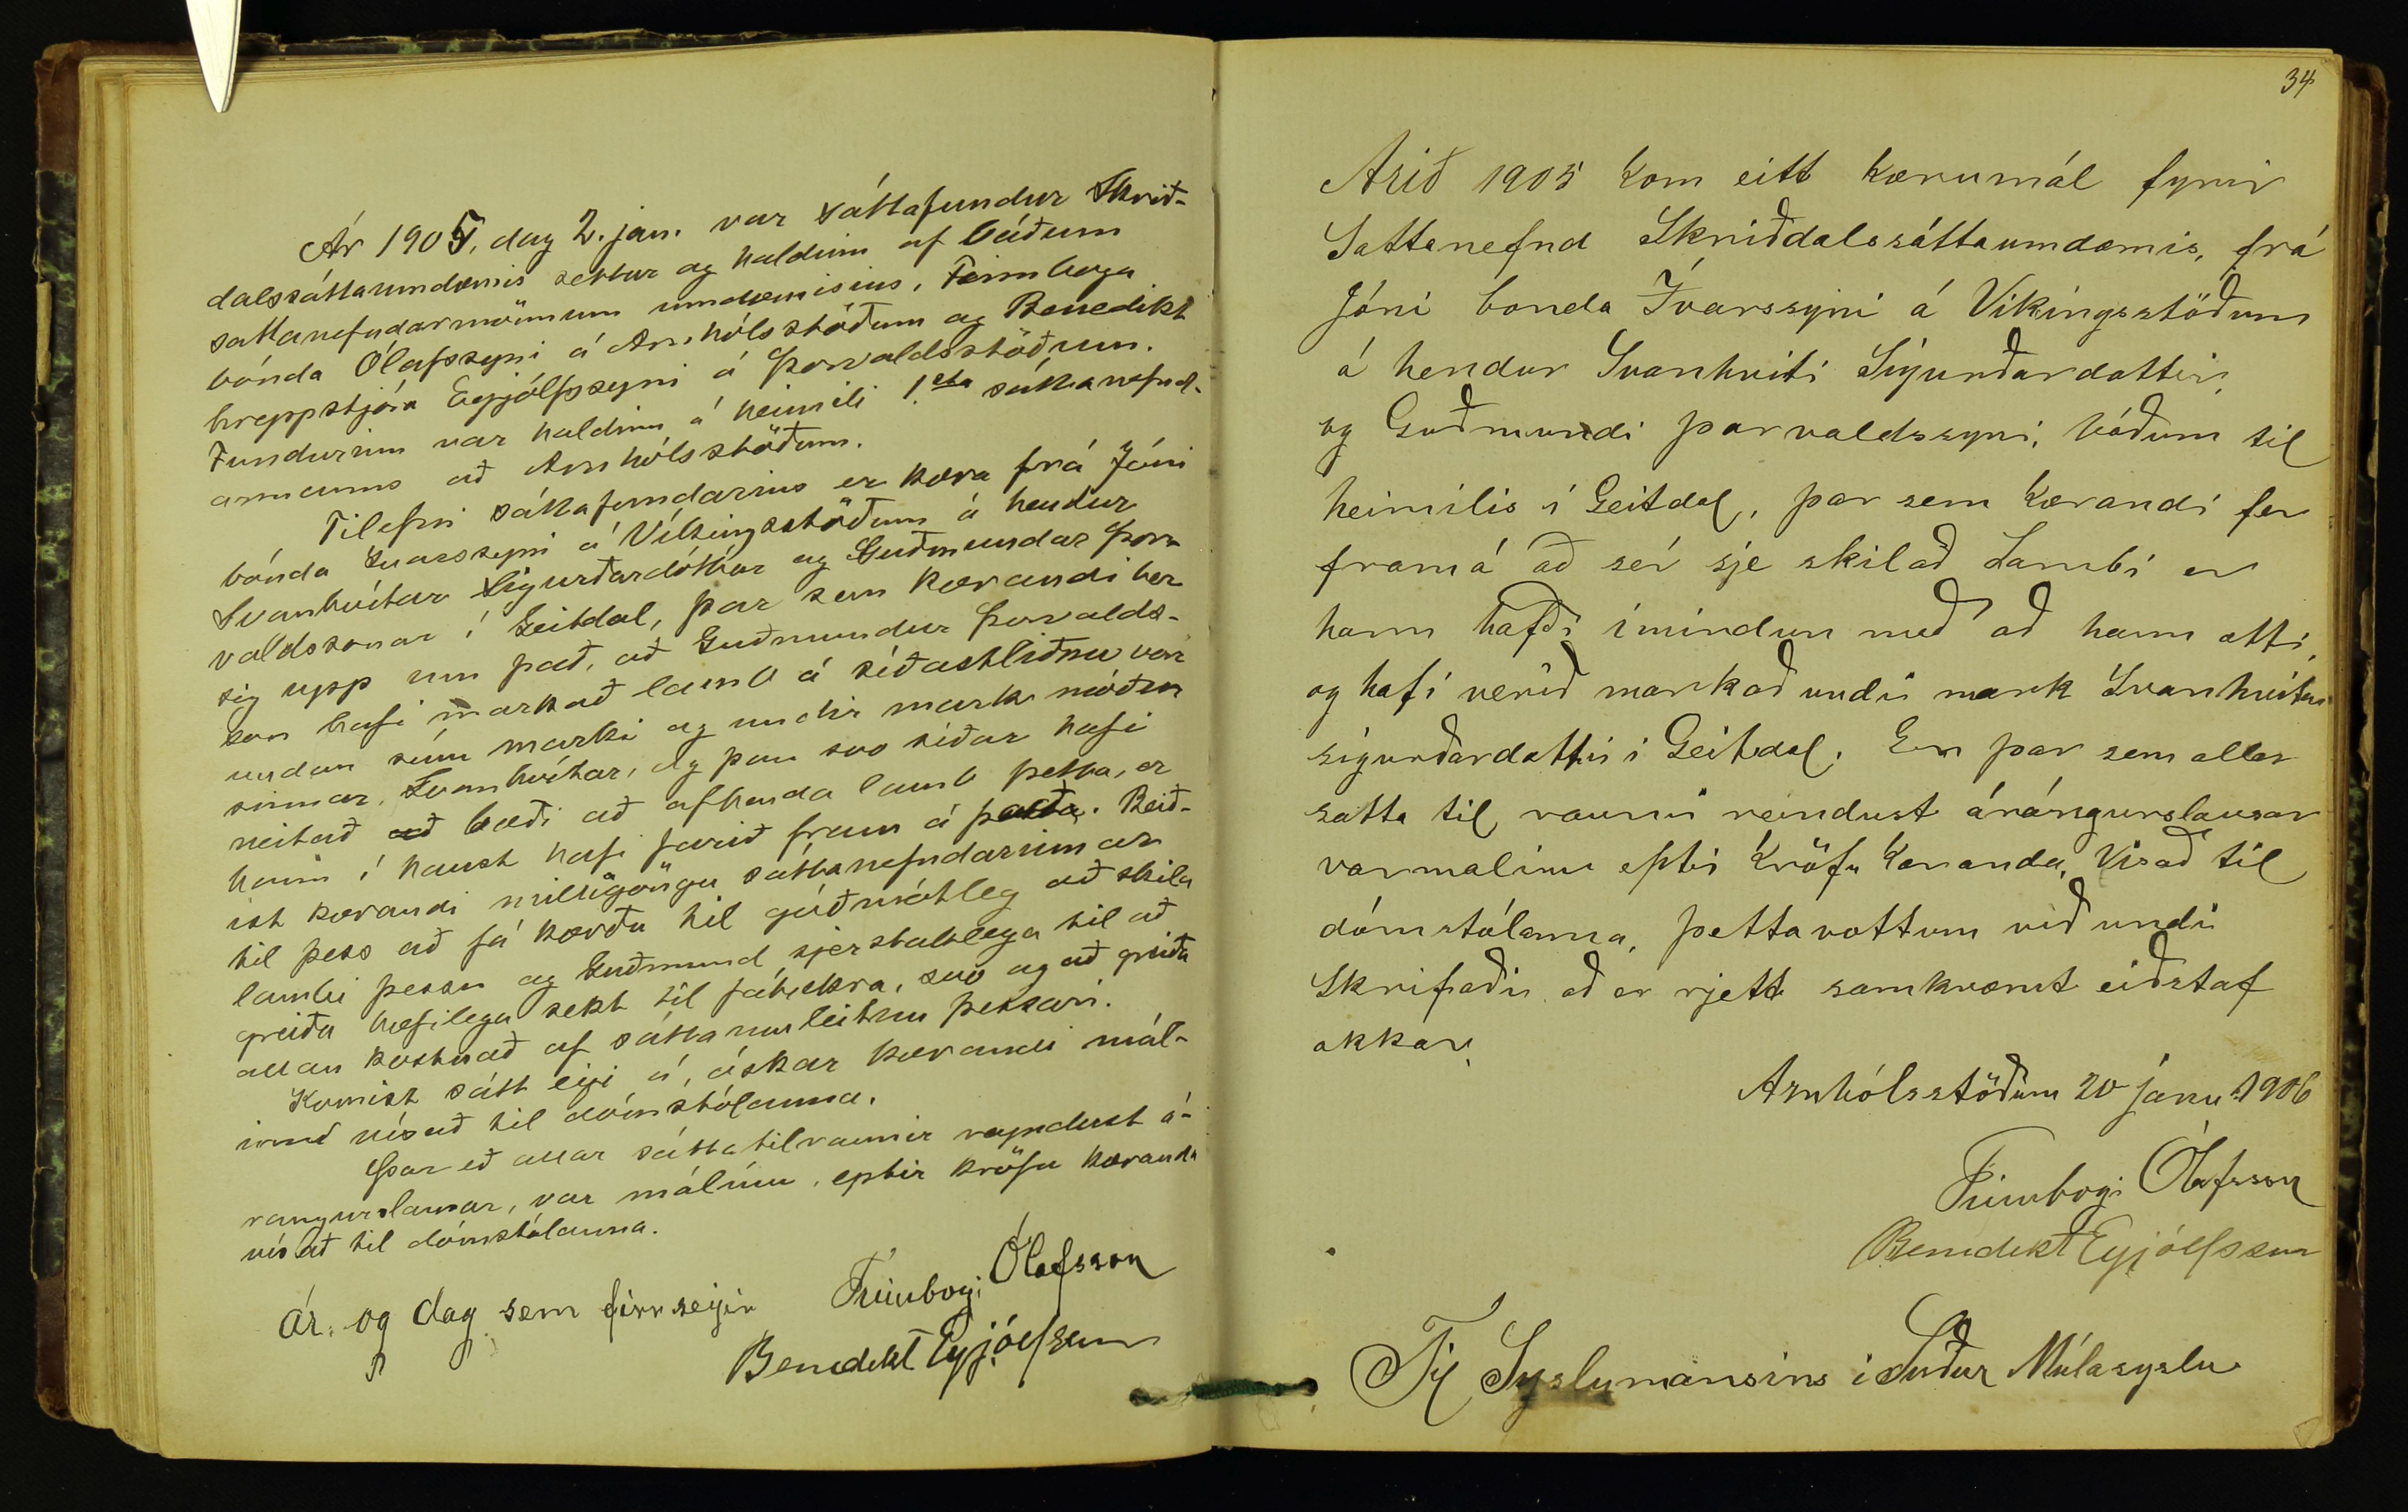 Ár 1905, dag 2. jan. var sáttafundur Skrið-
dalssáttaumdæmis settur og haldinn af báðum
sáttanefndarmönnum umdæmisins, Finnboga
bónda Ólafssyni á Arnhólsstöðum og Benedikt
hreppstjóra Eyjólfssyni á Þorvaldsstöðum.
Fundurinn var haldinn á heimili 1.sta sáttanefnd-
armanns að Arnhólsstöðum.
Tilefni sáttafundarins er kæra frá Jóni
bónda Ívarssyni á Víkingsstöðum á hendur
Svanhvítar Sigurðardóttur og Guðmundar Þor-
valdssonar í Geitdal, þar sem kærandi ber
sig upp um það, að Guðmundur Þorvalds-
son hafi markað lamb á síðastliðnu vori
undan sínu marki og undir mark móður
sinnar, Svanhvítar, og þau svo síðar hafi
neitað að bæði að afhenda lamb þetta, er
hann í haust hafi farið fram á það. Beið-
ist kærandi milligöngu sáttanefndarinnar
til þess að fá kærðu til góðmótleg að skila
lambi þessu og Guðmund sjerstaklega til að
greiða hæfilega sekt til fátækra, svo og að greiða
allan kostnað af sáttaumleitun þessari.
Komist sátt eigi á, óskar kærandi mál-
inu vísað til dómstólanna.
Þar eð allar sáttatilraunir reyndust á-
rangurslausar, var málinu, eptir kröfu kæranda
vísað til dómstólanna.
Ár og dag sem firr seigir Finnbogi Ólafsson
Benedikt Eyjólfsson
34
Arið 1905 kom eitt kærumál fyrir
Sattanefnd Skriðdalssáttaumdæmis, frá
Jóni bonda Ívarssyni á Vikingsstöðum
á hendur Svanhviti Sigurðardottir,
og Guðmundi þorvaldssyni, báðum til
heimilis í Geitdal, þar sem kærandi fer
framá að sér sje skilað Lambi er
hann hafði ímindun með að hann ætti,
og hafi verið markað undir mark Svanhvitar
sigurðardottir i Geitdal. En þar sem allar
satta til raunir reindust árángurslausar
varmalinu eptir kröfu kæranda, Visað til
dómstólanna, þetta vottum við undir
Skrifaðir að er rjett samkvæmt eiðstaf
okkar,
Arnhólsstöðum 20 janu. 1906
Finnbogi Ólafsson
Benedikt Eyjólfsson
Til Syslumansins i Suður Múlasyslu